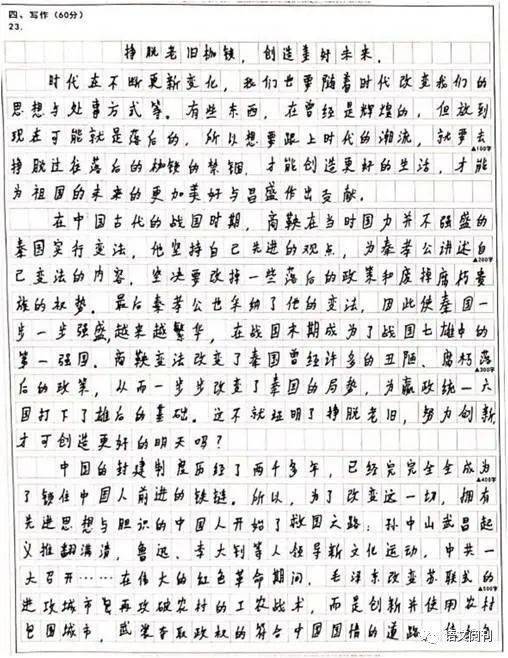 四、写作（60分）
23.
挣脱老旧枷锁，创造美好未来.
时代在不断更新变化，我们也要随着时代改变我们的
思想与处事方式等。有些东西，在曾经是辉煌的，但放到
现在可能就是落后的，所以想要跟上时代的潮流，就要去
▲100字
挣脱过往落后的枷锁的禁锢，才能创造更好的生活，才能
为祖国的未来的更加美好与昌盛作出贡献.
在中国古代的战国时期，商鞅在当时国力并不强盛的
秦国实行变法，他坚持自己先进的观点，为秦孝公讲述自
▲200字
己变法的内容，坚决要改掉一些落后的政策和废掉腐朽贵
族的权势。最后秦孝公也采纳了他的变法，因此使秦国一
步一步强盛，越来越繁华，在战国末期成为了战国七雄中的
第一强国。商鞅变法改变了秦国曾经许多的丑陋、腐朽落
▲300字
后的政策，从而一步步改变了秦国的局势，为嬴政统一六
国打下了雄后的基础。这不就证明了挣脱老旧，努力创新
才可创造更好的明天吗？
中国的封建制度历经了两千多年，已经完完全全成为
▲400字
了锁住中国人前进的铁链。所以，为了改变这一切，拥有
先进思想与胆识的中国人开始了救国之路：孙中山武昌起
义推翻满清，鲁迅、李大钊等人领导新文化运动，中共一
大召开……在伟大的红色革命期间，毛泽东改变苏联式的
▲500字
进攻城市再攻破农村的工农战术，而是创新并使用农村
包围城市，武装夺取政权的符合中国国情的道路
语文周刊